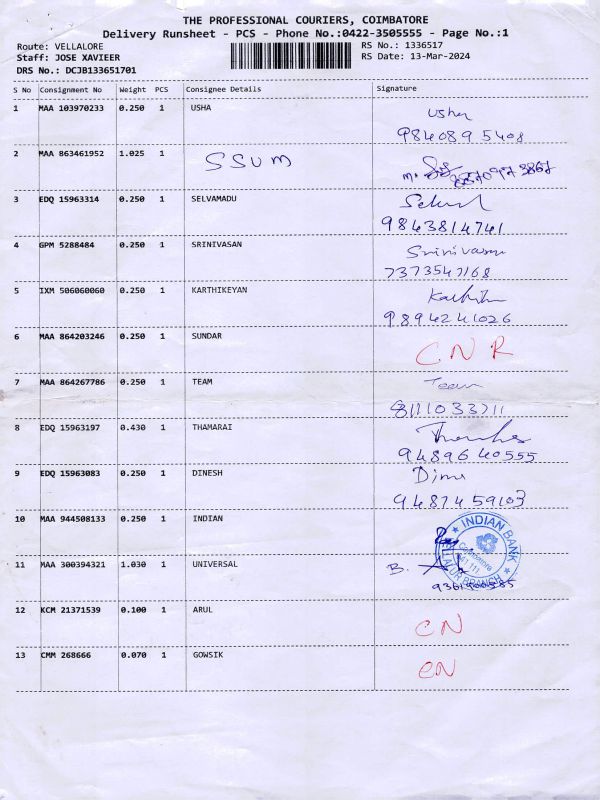 THE PROFESSIONAL COURIERS, COIMBATORE
Delivery Runsheet - PCS - Phone No.:0422-3505555 - Page No.:1
Route: VELLALORE
RS No.: 1336517
Staff: JOSE XAVIEER
RS Date: 13-Mar-2024
DRS No.: DCJB133651701
S No Consignment No Weight PCS Consignee Details Signature
1 MAA 103970233 0.250 1 USHA Usha
9840895408
2 MAA 863461952 1.025 1 SSUM
3 EDQ 15963314 0.250 1 SELVAMADU
9843814741
4 GPM 5288484 0.250 1 SRINIVASAN Srinivasan
7373547168
5 IXM 506060060 0.250 1 KARTHIKEYAN
9894241026
6 MAA 864203246 0.250 1 SUNDAR C.N R
7 MAA 864267786 0.250 1 TEAM Team
8111033711
8 EDQ 15963197 0.430 1 THAMARAI
9489640555
9 EDQ 15963083 0.250 1 DINESH
9487459103
10 MAA 944508133 0.250 1 INDIAN
INDIAN BANK
Coimbatore
641 111
BRANCH
11 MAA 300394321 1.030 1 UNIVERSAL B.
12 KCM 21371539 0.100 1 ARUL CN
13 CMM 268666 0.070 1 GOWSIK CN